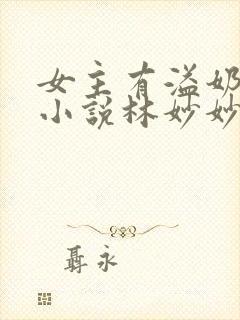 女主有溢奶
小说林妙妙
聂永